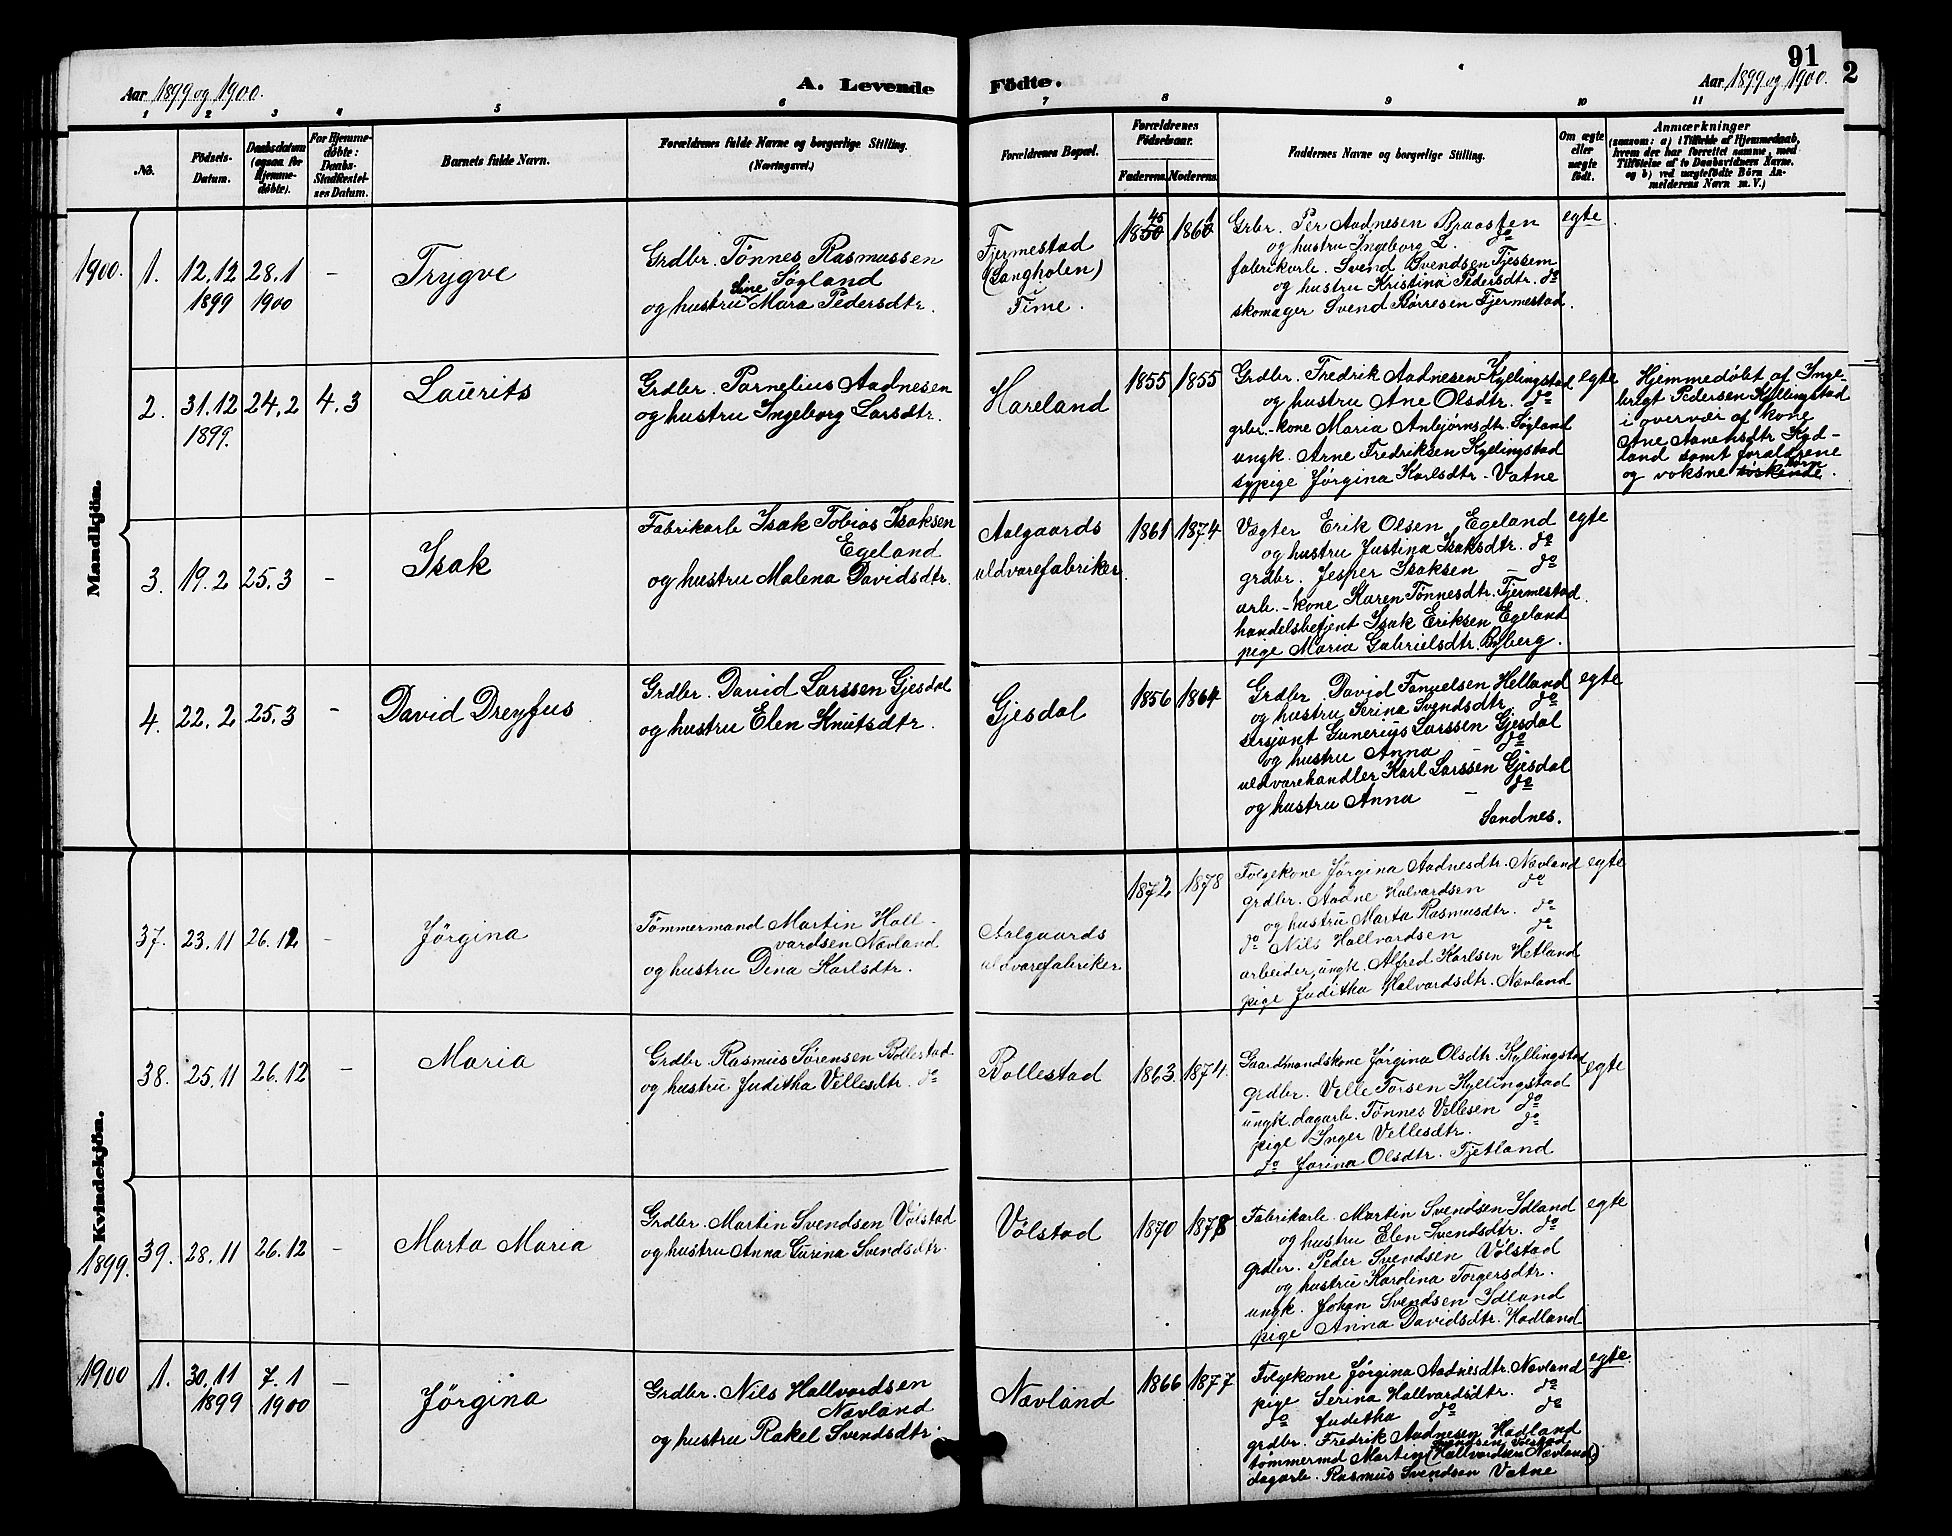 91
2
Aar 1899 og 1900.
A. Levende
Födte.
Aar 1899 og 1900.
1 2 3 4 5 6 7 8 9 10 11
No.
Födsels-
Datum.
Daabsdatum
(ogsaa for
Hjemme-
døbte).
For Hjemme-
døbte:
Daabs-
Stadfæstel-
ses Datum.
Barnets fulde Navn.
Forældrenes fulde Navne og borgerlige Stilling.
(Næringsvei.)
Forældrenes Bopæl.
Forældrenes
Födselsaar.
Faderens. Moderens.
Faddernes Navne og borgerlige Stilling.
Om ægte
eller
uægte
født.
Anmærkninger
(saasom: a) i Tilfælde af Hjemmedaab,
hvem der har forrettet samme, med
Tilföielse af to Daabsvidners Navne.
og b) ved uægtefödte Börn An-
melderens Navn m. V.)
Mandkjön.
1900.
1.
12.12
1899
28.1
1900
-
Trygve
Grdbr. Tönnes Rasmussen
Søgland
og hustru Sine Mara Pedersdtr.
Fjermestad
(Langholen)
Time.
45
1850
1
1860
Grbr. Per Aadnesen Braasten
og hustru Ingeborg L. do
fabrikarb. Svend Svendsen Fjessem
og hustru Kristina Pedersdtr. do
skomager Svend Börresen Fjermestad.
egte
2.
31.12
1899.
24.2
4.3
Laurits
Grdbr. Parnelius Aadnesen
og hustru Ingeborg Larsdtr.
Hareland
1855
1855
Grdbr. Fredrik Aadnesen Kyllingstad
og hustru Ane Olsdtr. do
grbr.-kone Maria Anbjørnsdtr. Søgland
ungk. Arne Fredriksen Kyllingstad
sypige Jørgina Karlsdtr. Vatne
egte
Hjemmedøbt af Inge-
brigt Pedersen Kyllingstad
i overvær af kone
Ane Aanensdtr Kyd-
land samt forældrene
og voksne søskende.
3.
19.2
25.3
-
Isak
Fabrikarb Isak Tobias Isaksen
Egeland
og hustru Malena Davidsdtr.
Aalgaards
uldvarefabriker.
1861
1874
Vægter Erik Olsen Egeland
og hustru Justina Isaksdtr. do
grdbr. Jesper Isaksen - do
arb.-kone Karen Tönnesdtr. Fjermestad.
handelsbetjent Isak Eriksen Egeland
pige Maria Gabrielsdtr. Byberg.
egte
4.
22.2
25.3
-
David Dreyfus
Grdbr. David Larssen Gjesdal
og hustru Elen Knutsdtr.
Gjesdal
1856
1864
Grdbr. David Fanuelsen Helland
og hustru Serina Svendsdtr. do
sersjant Gunerius Larssen Gjesdal
og hustru Anna - do
uldvarehandler Karl Larssen Gjesdal
og hustru Anna - do
Sandnes.
egte
Kvindekjön.
37.
23.11
26.12
-
Jörgina
Tömmermand Martin Hall-
vardsen Nævland
og hustru Dina Karlsdtr.
Aalgaards
uldvarefabriker
1872
1878
Folgekone Jørgina Aadnesdtr. Nævland
grdbr. Aadne Halvardsen do
og hustru Marta Rasmusdtr. do
do Nils Hallvardsen do
arbeider, ungk. Alfred Karlsen Hetland
pige Juditha Halvardsdtr. Nævland
egte
38.
25.11
26.12
-
Maria
Grdbr. Rasmus Sörensen Bollestad
og hustru Juditha Vellesdtr. do
Bollestad
1863.
1874.
Gaardmandskone Jørgina Olsdtr. Kyllingstad
grdbr. Velle Torsen Kyllingstad
ungk. dagarb. Tönnes Vellesen do
pige Inger Vellesdtr. do
do Jorina Olsdtr. Tjetland
egte
1899.
39.
28.11
26.12
-
Marta Maria
Grdbr. Martin Svendsen Vølstad
og hustru Anna Gurina Svendsdtr.
Vølstad
1870
1878
Fabrikarb. Martin Svendsen Idland
og hustru Elen Svendsdtr. do
grdbr. Peder Svendsen Vølstad
og hustru Karolina Torgersdtr.
ungk. Johan Svendsen Idland
pige Anna Davidsdtr. Hadland
egte
1900
1.
30.11
1899
7.1
1900
-
Jörgina
Grdbr. Nils Hallvardsen
Nævland
og hustru Rakel Svendsdtr.
Nævland
1866
1877
Folgekone Jørgina Aadnesdtr. Nævland
pige Serina Hallvardsdtr. do
do Juditha do do
grdbr. Fredrik Aadnesen Hadland
Svendsen Vølstad
tömmermd Martin (Hallvardsen Nævland)
dagarb. Rasmus Svendsen Vatne
egte.